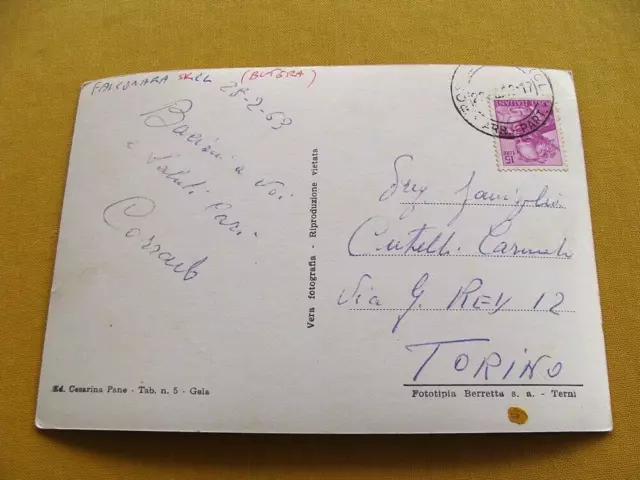 FALCONARA SICUL (BUTERA)
28-2-63
Bacioni a Voi
e Saluti Cari
Corrado
Vera fotografia - Riproduzione vietata
15
LIRE
ARR. PART
Famiglia
Cutelli Carmelo
Via G. REY 12
TORINO
Ed. Cesarina Pane - Tab. n. 5 - Gela
Fototipia Berretta s. a. - Terni